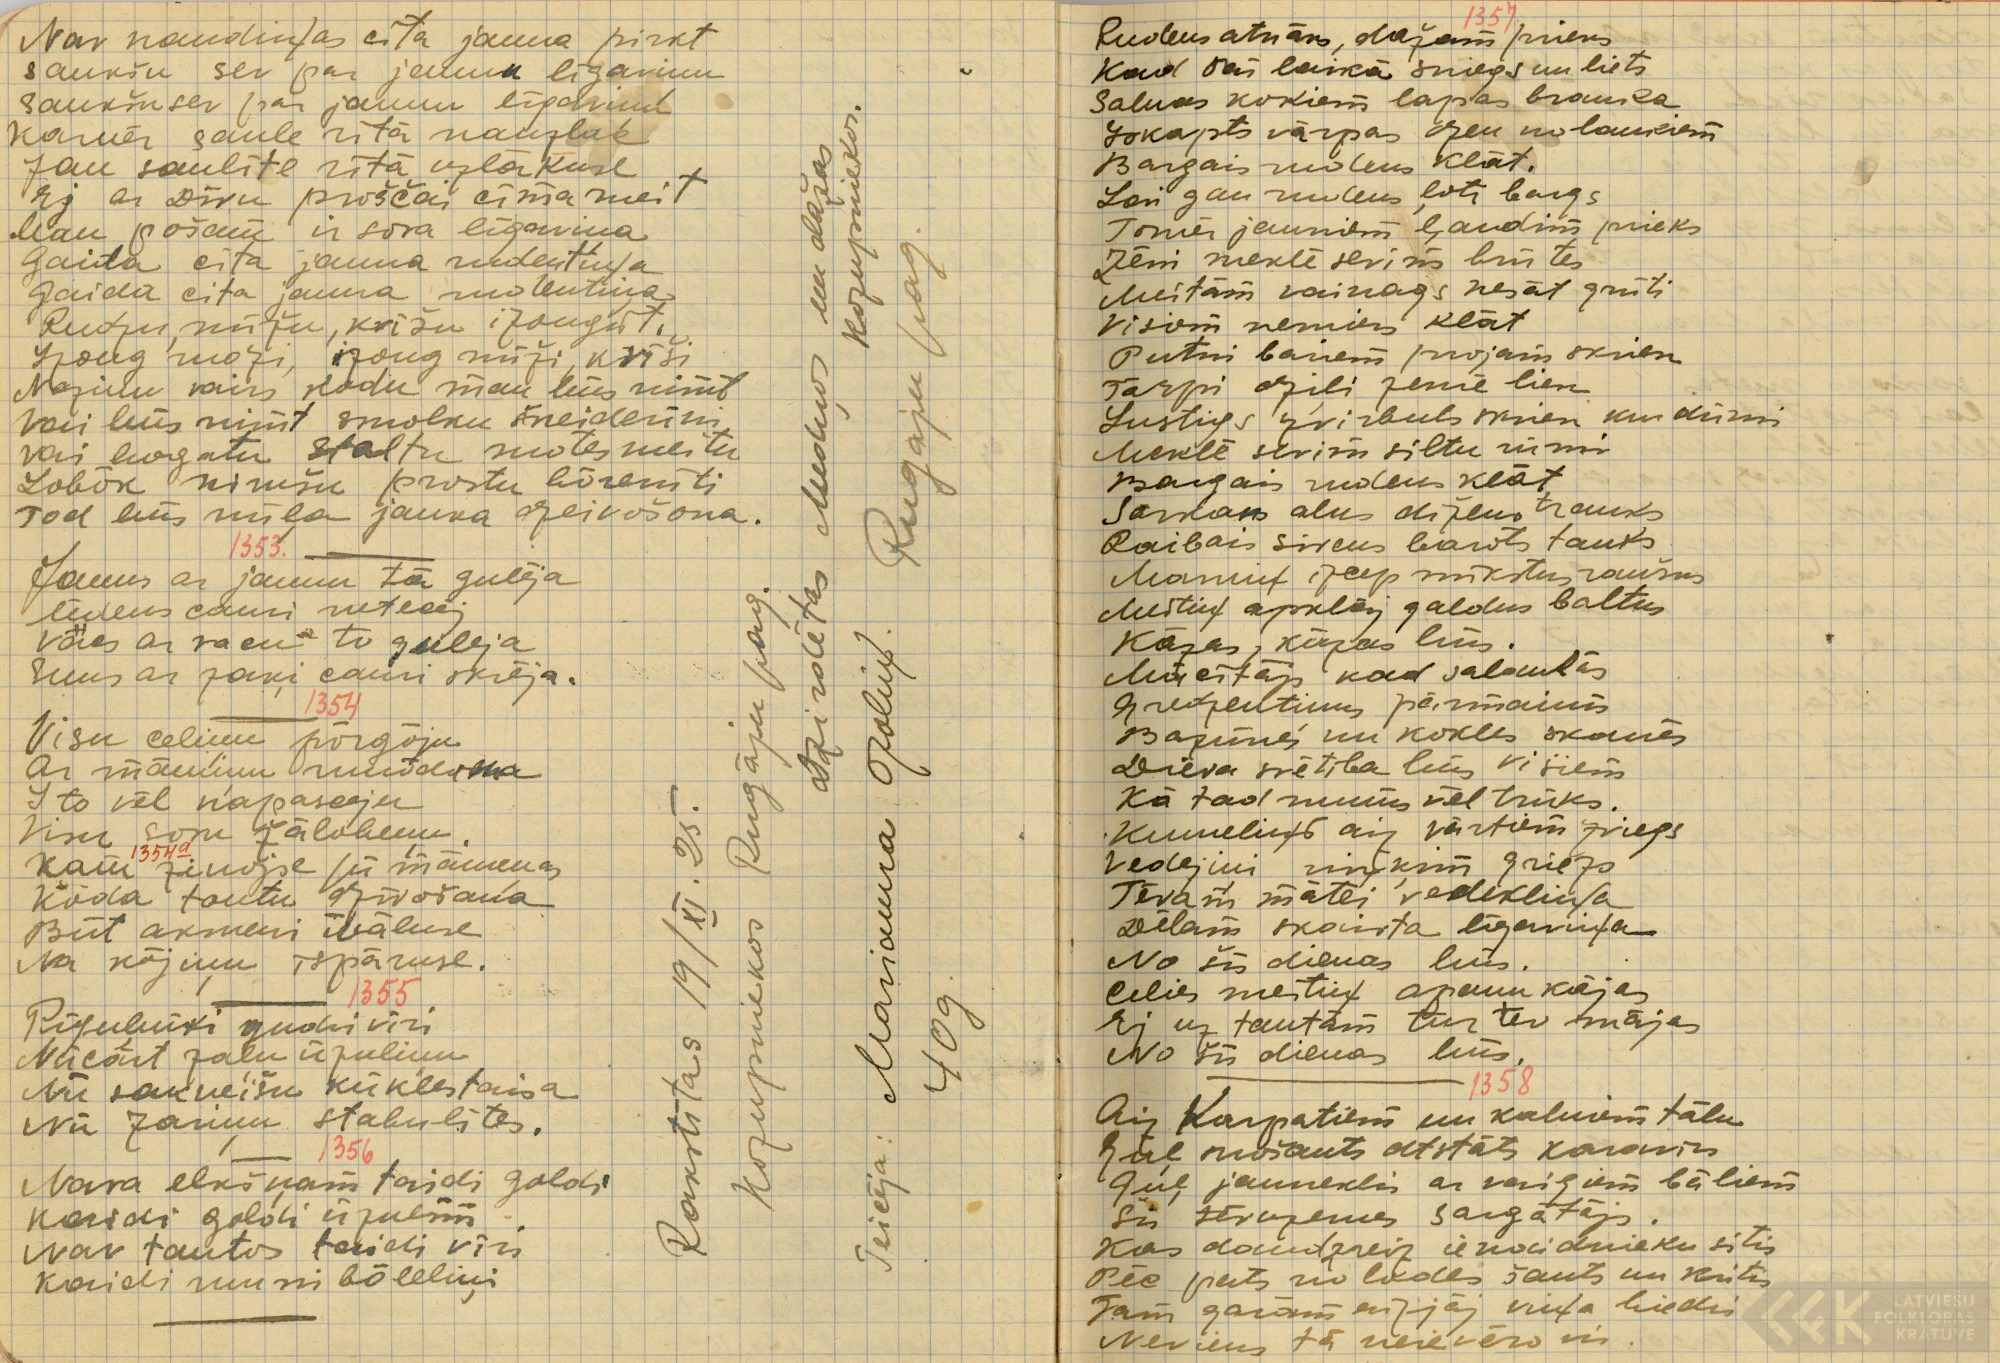 Nav naudiņas cita jauna pirkt
saukšu sev par jaunu līgavinu
saukšu sev par jaunu līgavinu
Kamēr saule rītā nauzlāk
Jau saulīte rītā uzlākuse
Ej ar Divu proščai cīma meit
Man pošam ir sova līgavina
Gaida cita jauna rudentiņa
Gaida cita jauna rudentiņa
Rudzu, mīžu, krišu izaugūt.
Izaug rudzi, izaug mīži, kriši
Nazinu vairs, kodu man būs nimt
Vai būs nimt smolku šneiderīni
Vai bogatu staltu motes meitu
Lobōk nimšu prostu bōreniti
Tod būs mīļa jauka dzeivošona.
1353.
Jauns ar jaunu tā gulēja
ūdens cauri netecēj
Vācs ar vacu to guleja
Suns ar zaķi cauri skrēja.
1354
Visu celiņu pōrgōju
Ar māmiņu runōdama
I to vēl napasceju
Visu sovu žālobeņu.
1354a
Kam zinōjse ſū māmenas
Kōda tautu dzivošana
Būt akmeni īvāluse
Na kōjiņu īspāruse.
1355
Rīgulnīki gudri vīri
Nūcārt zaļu ūzuliņu
Nū saknēišu kūkles taisa
Nū zariņu stabulītes.
1356
Nava elkšņam taidi goldi
Kaidi goldi ūzulam
Nav tautos taidi vīri
Kaidi muni bōleliņi
Rakstītas 19/XI. 35.
Kozupniekos Rugāju pag.
dzirdētas Medņos un dažas Kozupniekos.
Teicēja: Marianna Ozoliņ. Rugaju pag.
40g.
1357
Rudens atnāks, dažam prieks
Kad šai laikā sniegs un liets
Salnas kokiem lapas brauka
Izkapts vārpas dzen no laukiem
Bargais rudens klāt.
Lai gan rudens ļoti bargs
Tomēr jauniem ļaudim prieks
Zēni meklē sevim brūtes
Meitām vainags nesāt grūti
Visiem nemiers klāt
Putni bariem projam skrien
Tārpi dzili zemē lien
Lustigs zvirbuls skrien kur dūmi
Meklē sevim siltu rūmi
Bargais rudens klāt
Sarkans alus dižens trauks
Raibais sivens barots tauks
Mamiņ izcep mīkstus raušus
Meitiņ apklāj galdus baltus
Kāzas, kāzas būs.
Mācitājs kad salaulās
Gredzentinus pārmainis
Bazūnes un kokles skanēs
Dieva svētiba būs visiem
Kā tad mums vēl trūks.
Kumeliņš aiz vārtiem zviegs
Vedejini riņķim griezs
Tēvam mātei vedekliņa
Dēlam skaista līgaviņa
No šīs dienas būs.
Celies meitiņ apaun kājas
Ej uz tautām tur tev mājas
No šīs dienas būs.
1358
Aiz Karpatiem un kalniem tālu
Guļ nošauts atstāts karavirs
Guļ jauneklis ar vaigiem bāliem
Šīs tēvuzemes sargātājs.
Kas daudzreiz ienaidnieku sitis
Pēc pats no lodes šauts un kritis
Tam garām aizjāj viņa biedri
Neviens tā neievēro vis.
LATVIEŠU
FOLKLORAS
KRĀTUVE